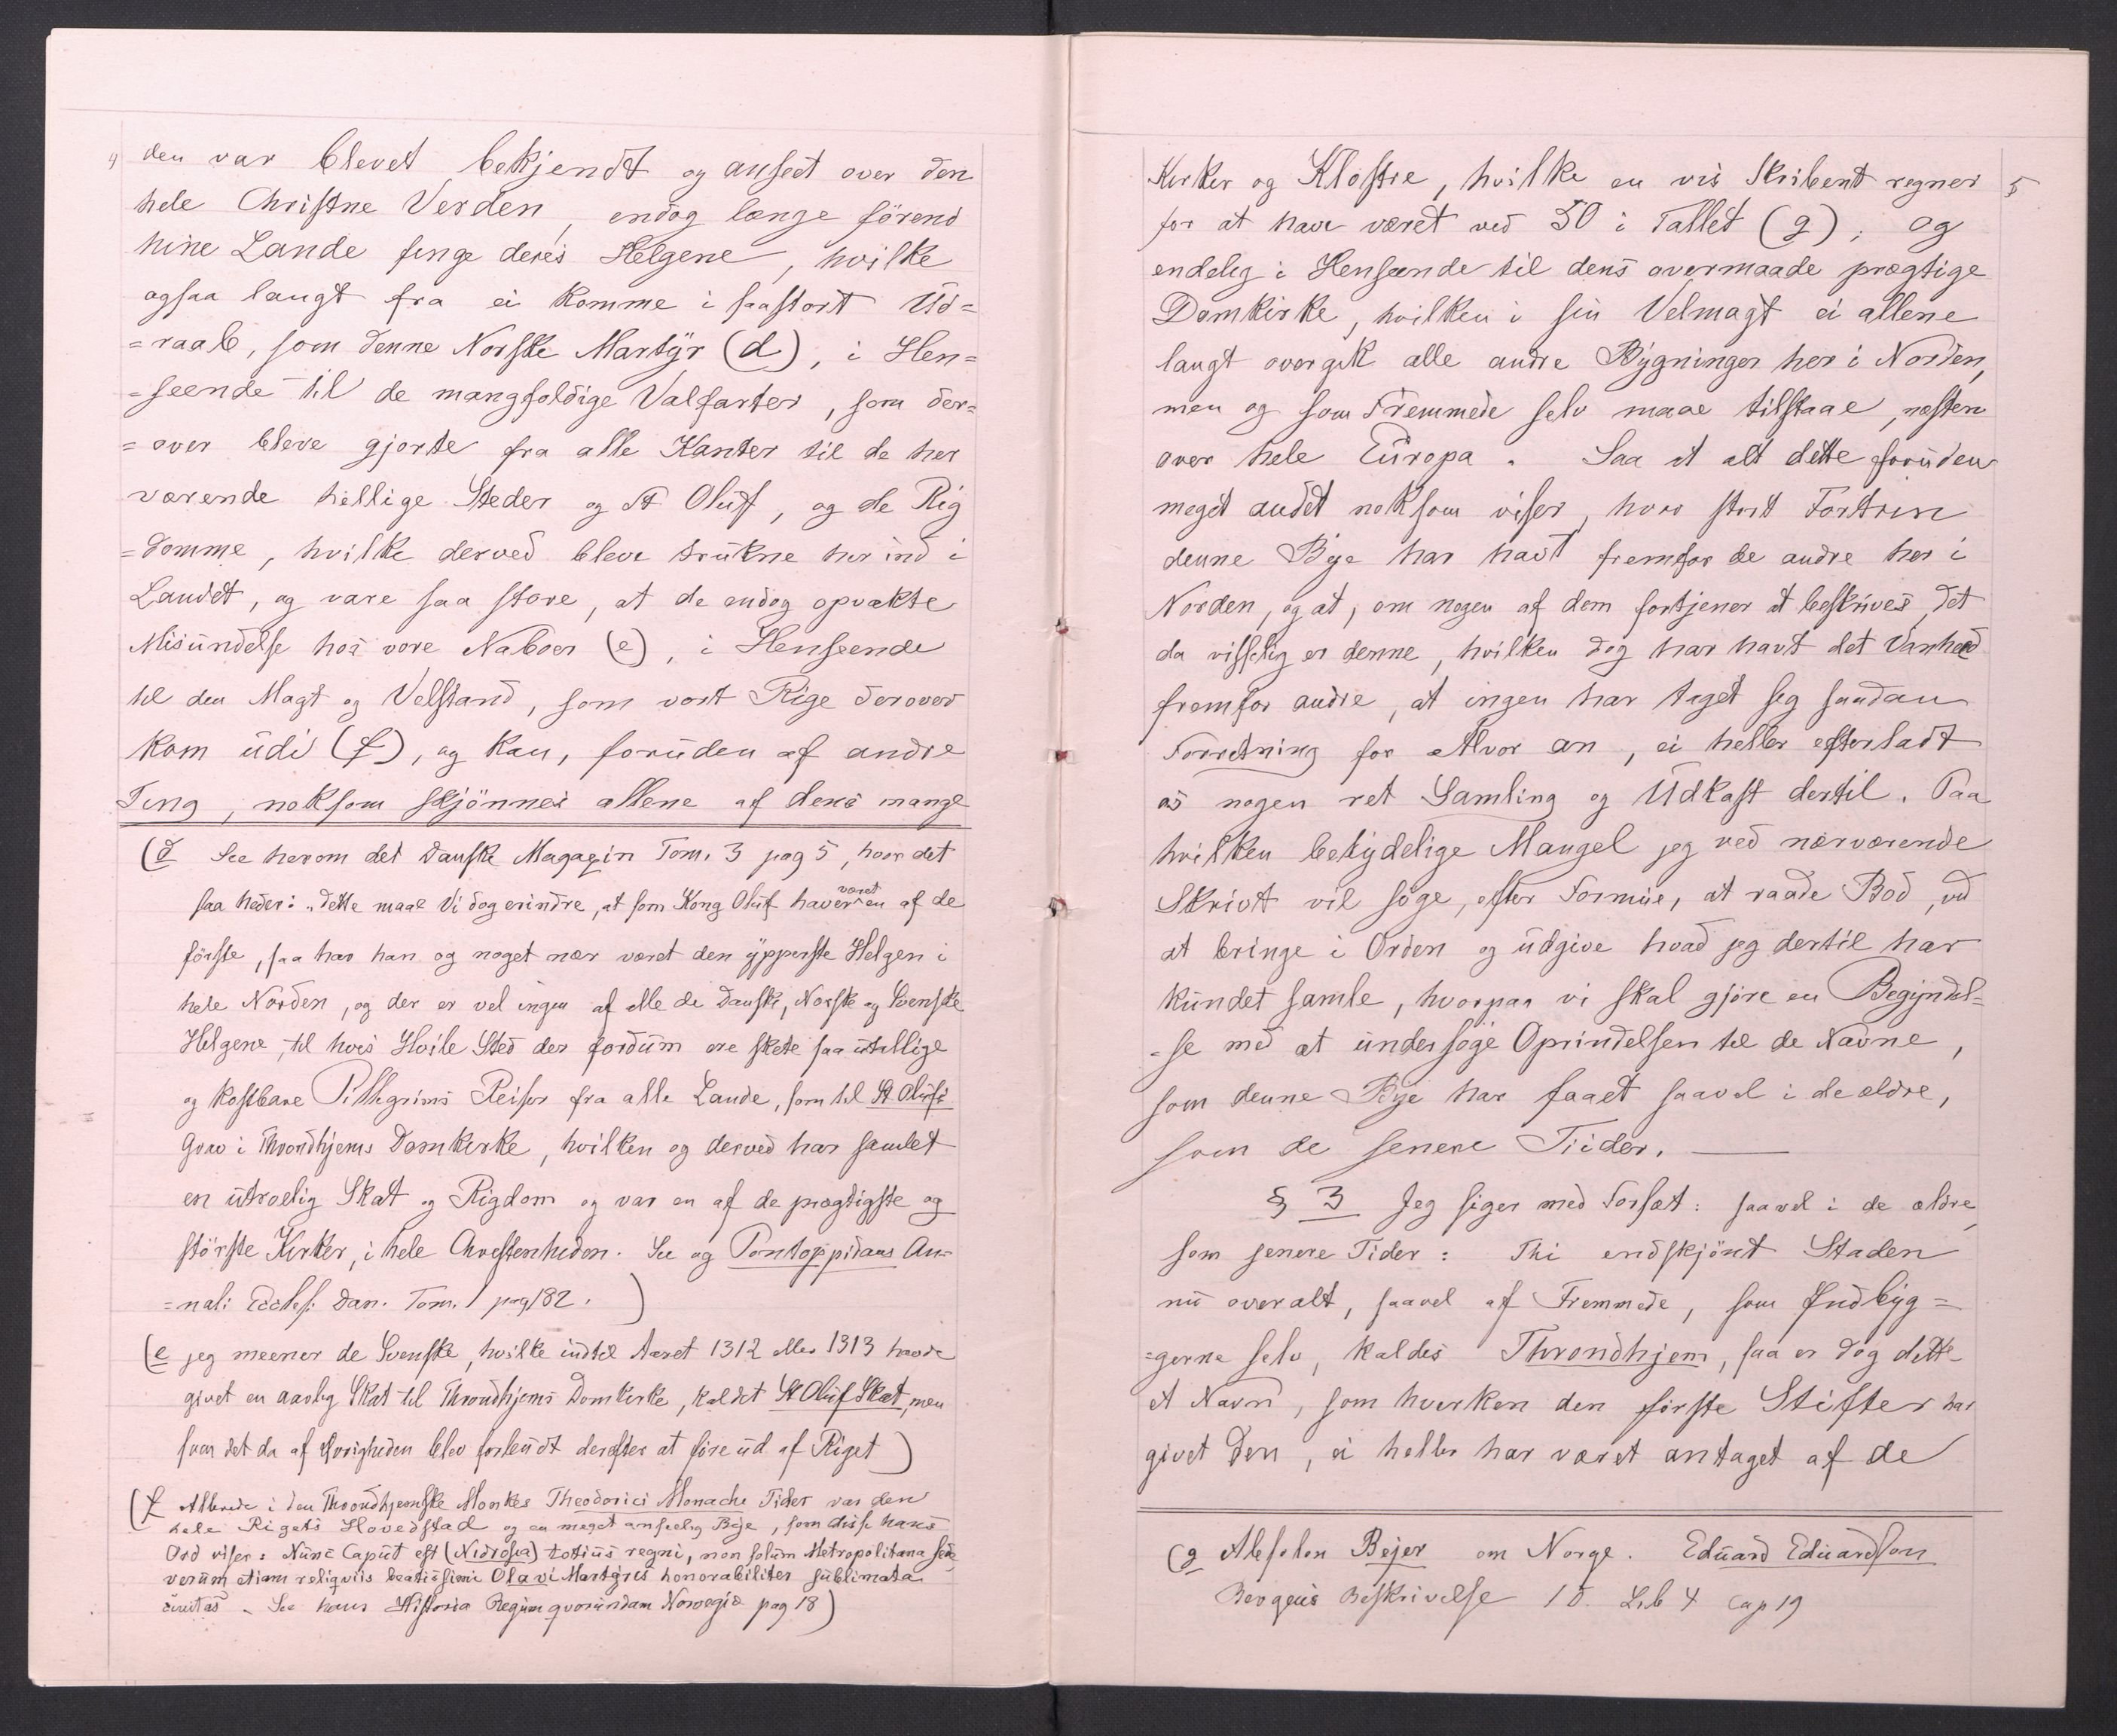 4
den var blevet bekjendt og anseet over den
hele Christne Verden, endog længe förend
hine Lande finge deres Helgene, hvilke
ogsaa langt fra ei komme i saastort Ud=
=raab, som denne Norske Martyr (d), i Hen=
=seende til de mangfoldige Valfarter, som der=
=over bleve gjorte fra alle Kanter til de her
værende hellige Steder og St Oluf, og de Rig
=domme, hvilke derved bleve trukne her ind i
Landet, og vare saa store, at de endog opvakte
Misundelse hos vore Naboer (e), i Henseende
til den Magt og Velstand, som vort Rige derover
kom udi (f), og kan, foruden af andre
Ting, noksom skjönnes allene af dens mange
(d See herom det Danske Magazin Tom. 3 pag 5, hvor det
saa heder: "dette maae Vi dog erindre, at som Kong Oluf haver været en af de
förste, saa har han og noget nær været den ypperste Helgen i
hele Norden, og der er vel ingen af alle de Danske, Norske og Svenske
Helgene, til hvis Hvile Sted der fordum ere skete saa utallige
og kostbare Pillegrims Reiser fra alle Lande, som til St Olufs
Grav i Throndhjems Domkirke, hvilken og derved har samlet
en utroelig Skat og Rigdom og var en af de prægtigste og
störste Kirker, i hele Christenheden. See og Pontoppidans An=
=nal: Eccles: Dan. Tom. 1 pag 182. )
(e jeg meener de Svenske, hvilke indtil Aaret 1312 eller 1313 havde
givet en aarlig Skat til Throndhjems Domkirke, kaldet St Oluf Skat, men
som det da af Øvrigheden blev forbudt derefter at före ud af Riget)
(f Allerede i den Throndhjemske Monkes Theodorici Monachi Tider var den
hele Rigets Hovedstad og en meget anseelig Bye, som disse hans
Ord viser: Nunc Caput est (Nidrosia) totius regni, non solum Metropolitana sede
verum etiam reliqviis beatissimi Olavi Martyris honorabiliter sublimata
civitas. See hans Historia Regum qvorundam Norvegiæ pag 18)
5
Kirker og Klostre, hvilke en vis Skribent regner
for at have været ved 30 i Tallet (g); og
endelig i Henseende til dens overmaade prægtige
Domkirke, hvilken i sin Velmagt ei allene
langt overgik alle andre Bygninger her i Norden,
men og som Fremmede selv maae tilstaae, næsten
over hele Europa. Saa at alt dette foruden
meget andet noksom viser, hvor stort Fortrin
denne Bye har havt fremfor de andre her i
Norden, og at, om nogen af dem fortjener at beskrives, det
da visselig er denne, hvilken dog har havt det Vanheld
fremfor andre, at ingen har taget sig saadan
Forretning for Alvor an, ei heller efterladt
os nogen ret Samling og Udkast dertil. Paa
hvilken betydelige Mangel jeg ved nærværende
Skrivt vil söge, efter Formue, at raade Bod, ved
at bringe i Orden og udgive hvad jeg dertil har
kundet samle, hvorpaa vi skal gjöre en Begyndel=
=se med at undersöge Oprindelsen til de Navne,
som denne Bye har faaet saavel i de ældre,
som de senere Tiider. —
§ 3 Jeg siger med Forsæt: saavel i de ældre
som senere Tider: Thi endskjönt Staden
nu overalt, saavel af Fremmede, som Indbyg=
=gerne selv, kaldes Throndhjem, saa er dog dette
et Navn, som hverken den förste Stifter har
givet den, ei heller har været antaget af de
(g Absolon Bejer om Norge. Eduard Eduardson
Bergens Beskrivelse 1 D. Lib 4 Cap 19